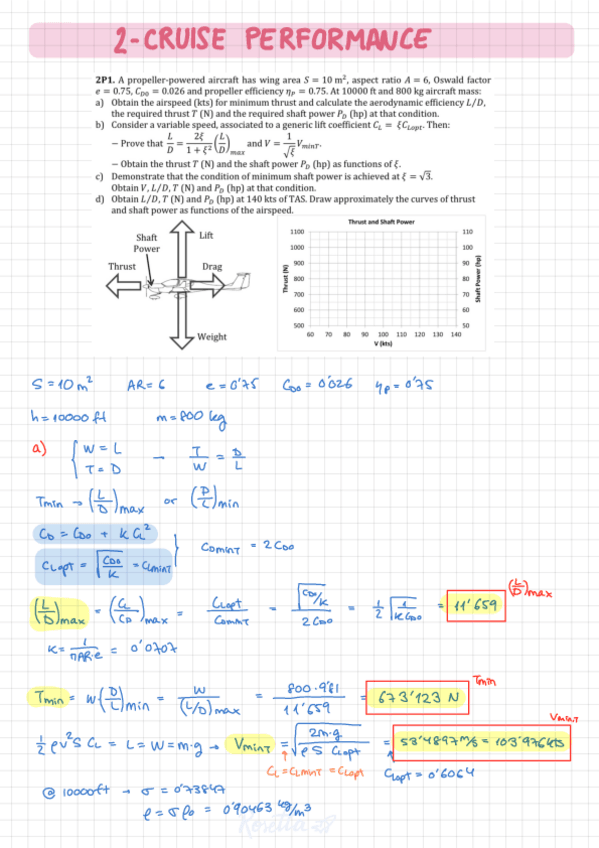 2-CRUISE PERFORMANCE
2P1. A propeller-powered aircraft has wing area S = 10 m², aspect ratio A = 6, Oswald factor
e = 0.75, C_D0 = 0.026 and propeller efficiency η_P = 0.75. At 10000 ft and 800 kg aircraft mass:
a) Obtain the airspeed (kts) for minimum thrust and calculate the aerodynamic efficiency L/D,
the required thrust T (N) and the required shaft power P_D (hp) at that condition.
b) Consider a variable speed, associated to a generic lift coefficient C_L = ξC_Lopt. Then:
– Prove that L/D = 2ξ/(1 + ξ²) (L/D)_max and V = 1/√ξ V_minT.
– Obtain the thrust T (N) and the shaft power P_D (hp) as functions of ξ.
c) Demonstrate that the condition of minimum shaft power is achieved at ξ = √3.
Obtain V, L/D, T (N) and P_D (hp) at that condition.
d) Obtain L/D, T (N) and P_D (hp) at 140 kts of TAS. Draw approximately the curves of thrust
and shaft power as functions of the airspeed.
Shaft Power
Lift
Thrust
Drag
Weight
Thrust and Shaft Power
Thrust (N)
1100
1000
900
800
700
600
500
110
100
90
80
70
60
50
Shaft Power (hp)
60 70 80 90 100 110 120 130 140
V (kts)
S = 10 m² AR = 6 e = 0'75 C_D0 = 0'026 η_P = 0'75
h = 10000 ft m = 800 kg
a) { W = L T = D → T/W = D/L
Tmin → (L/D)max or (D/L)min
C_D = C_D0 + K C_L²
C_Lopt = √(C_D0/K) = C_LminT } C_DminT = 2 C_D0
(L/D)max = (C_L/C_D)max = C_Lopt/C_DminT = √(C_D0/K)/2C_D0 = 1/2 √(1/KC_D0) = 11'659 (L/D)max
K = 1/πAR·e = 0'0707
Tmin = W(D/L)min = W/(L/D)max = 800·9'81/11'659 = 673'123 N Tmin
1/2 ρv²S C_L = L = W = m·g → VminT = √(2m·g/ρ S C_Lopt) = 53'4897 m/s = 103'976 kts VminT
C_L = C_LminT = C_Lopt C_Lopt = 0'6064
@ 10000ft → σ = 0'73847
ρ = σρ₀ = 0'90463 kg/m³